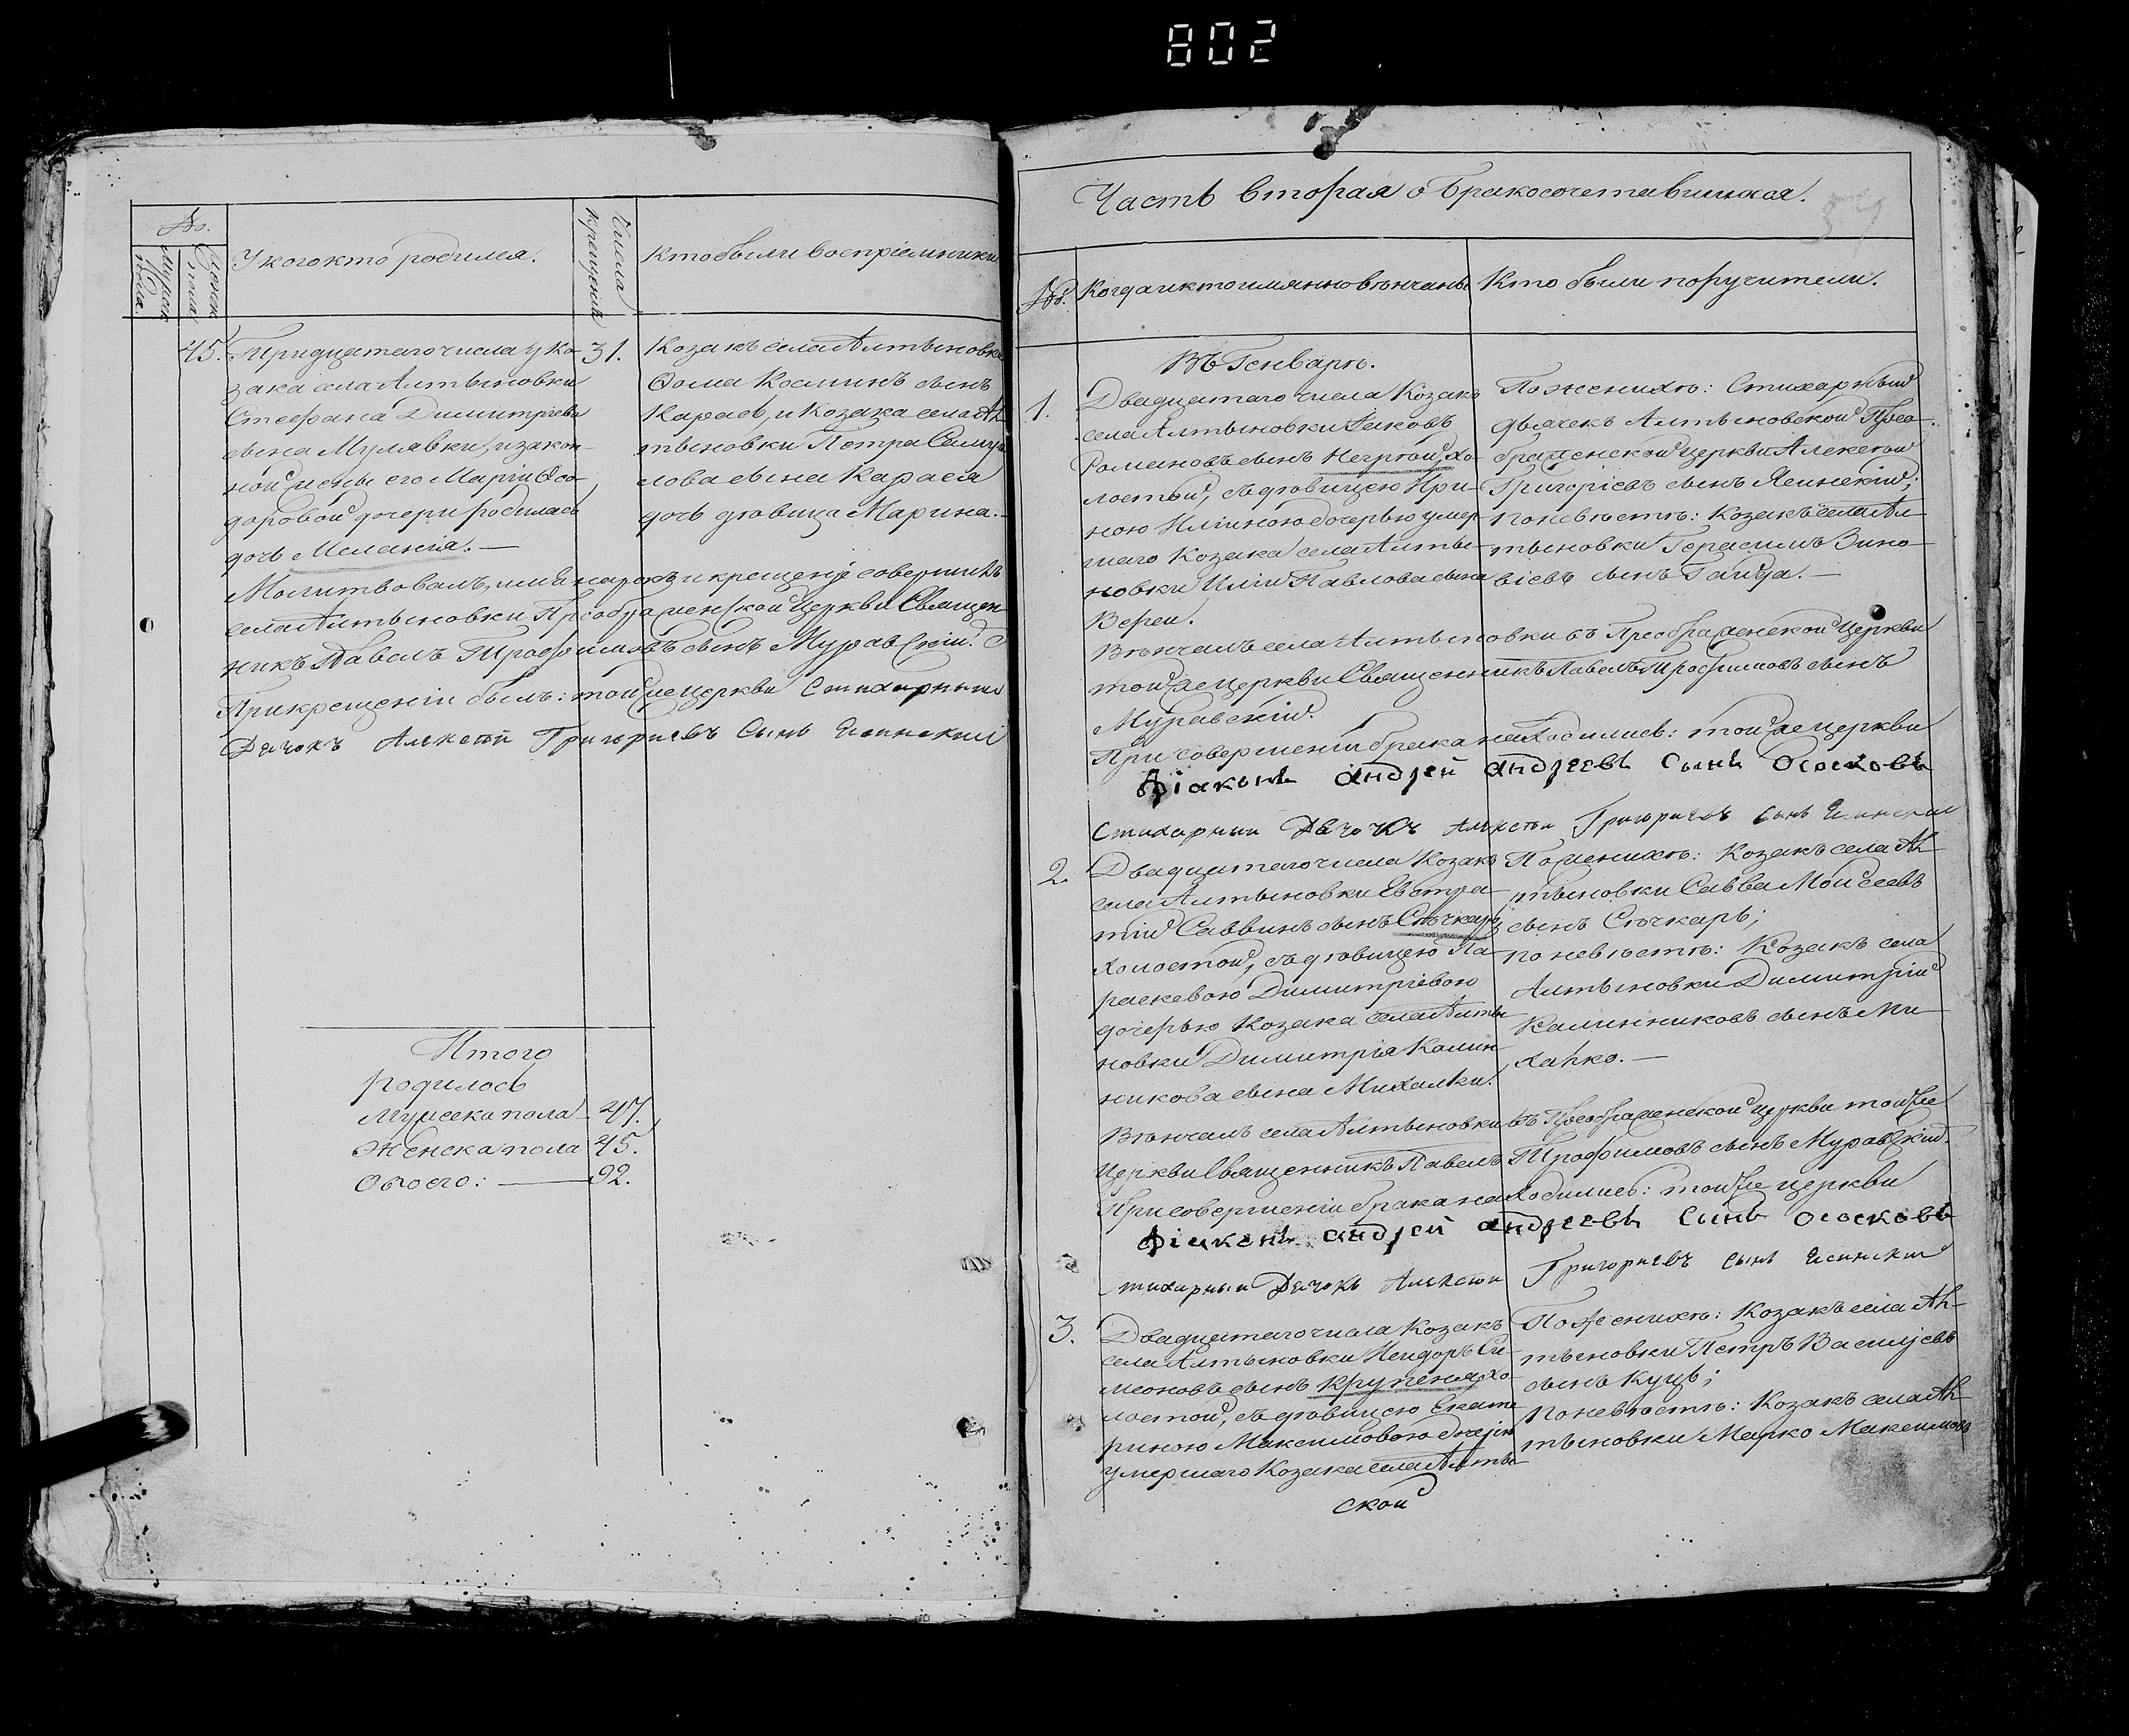 802
№.
Мужск пола.
Женск пола
У кого кто родился.
Числа крещенія
Кто были воспріемники
45. Тридцатаго числа у Ко-
зака села Алтыновки
Стефана Димитріева
сына Мулявки, и закон-
ной жены его Маріи Ѳео-
доровой дочери родилась
дочь Меланія. —
31.
Козакъ села Алтыновки
Ѳома Косминъ сынъ
Карась, и Козака села Ал-
тыновки Петра
сына Карася
дочь дѣвица Марина. —
Молитвовалъ, имя нарекъ и крещеніе совершилъ
села Алтыновки Преображенской Церкви Священ-
никъ Павелъ Трофимовъ сынъ Муравскій.
При крещеніи былъ: той же церкви Стихарный
Дячокъ Алексѣй Григориевъ Сынъ Ясинский
Итого
родилось
Мужеска пола 47.
Женска пола 45.
Обоего: — 92.
Часть вторая о бракосочетавшихся.
№. Когда и кто имянно вѣнчаны
Кто были поручители.
Въ Генварѣ.
1. Двадцатаго числа Козакъ
села Алтыновки Іаковъ
Романовъ сынъ Негртой, хо-
лостой, съ дѣвицею Ири-
ною Иліиною дочерью умер-
шаго Козака села Алты-
новки Иліи Павлова сына
Вереи.
По женихѣ: Стихарный
дьячекъ Алтыновской Прео-
браженской церкви Алексѣй
Григоріевъ сынъ Ясинскій;
по невѣстѣ: Козакъ села Ал-
тыновки Герасимъ Зино-
віевъ сынъ Гайда. —
Вѣнчалъ села Алтыновки въ Преображенской Церкви
той же церкви Священникъ Павелъ Трофимовъ сынъ
Муравскій.
При совершеніи брака находились: той же церкви
Діаконъ Андрей Андреевъ Сынъ Ососковъ
Стихарный Дячокъ Алексѣй Григориевъ Сынъ Ясинский
2. Двадцатаго числа Козакъ
села Алтыновки Евстра-
тій Саввинъ сынъ Сѣчкарь,
холостой, съ дѣвицею Па-
раскевою Димитріевою
дочерью Козака села Алты-
новки Димитрія Калин-
никова сына Михалки.
По женихѣ: Козакъ села Ал-
тыновки Савва Моисеевъ
сынъ Сѣчкарь;
по невѣстѣ: Козакъ села
Алтыновки Димитрій
Калинниковъ сынъ Ми-
халко. —
Вѣнчалъ села Алтыновки въ Преображенской церкви той же
Церкви Священникъ Павелъ Трофимовъ сынъ Муравскій.
При совершеніи брака находились: той же церкви
Діаконъ Андрей Андреевъ Сынъ Ососковъ
Стихарный Дячокъ Алексѣй Григориевъ Сынъ Ясинский
3. Двадцатаго числа Козакъ
села Алтыновки Исидоръ Си-
меоновъ сынъ Крупеня, хо-
лостой, съ дѣвицею Екате-
риною Максимовою дочерью
умершаго Козака села Алты-
По женихѣ: Козакъ села Ал-
тыновки Петръ Василіевъ
сынъ Куць;
по невѣстѣ: Козакъ села Ал-
тыновки Марко Максимовъ
ской